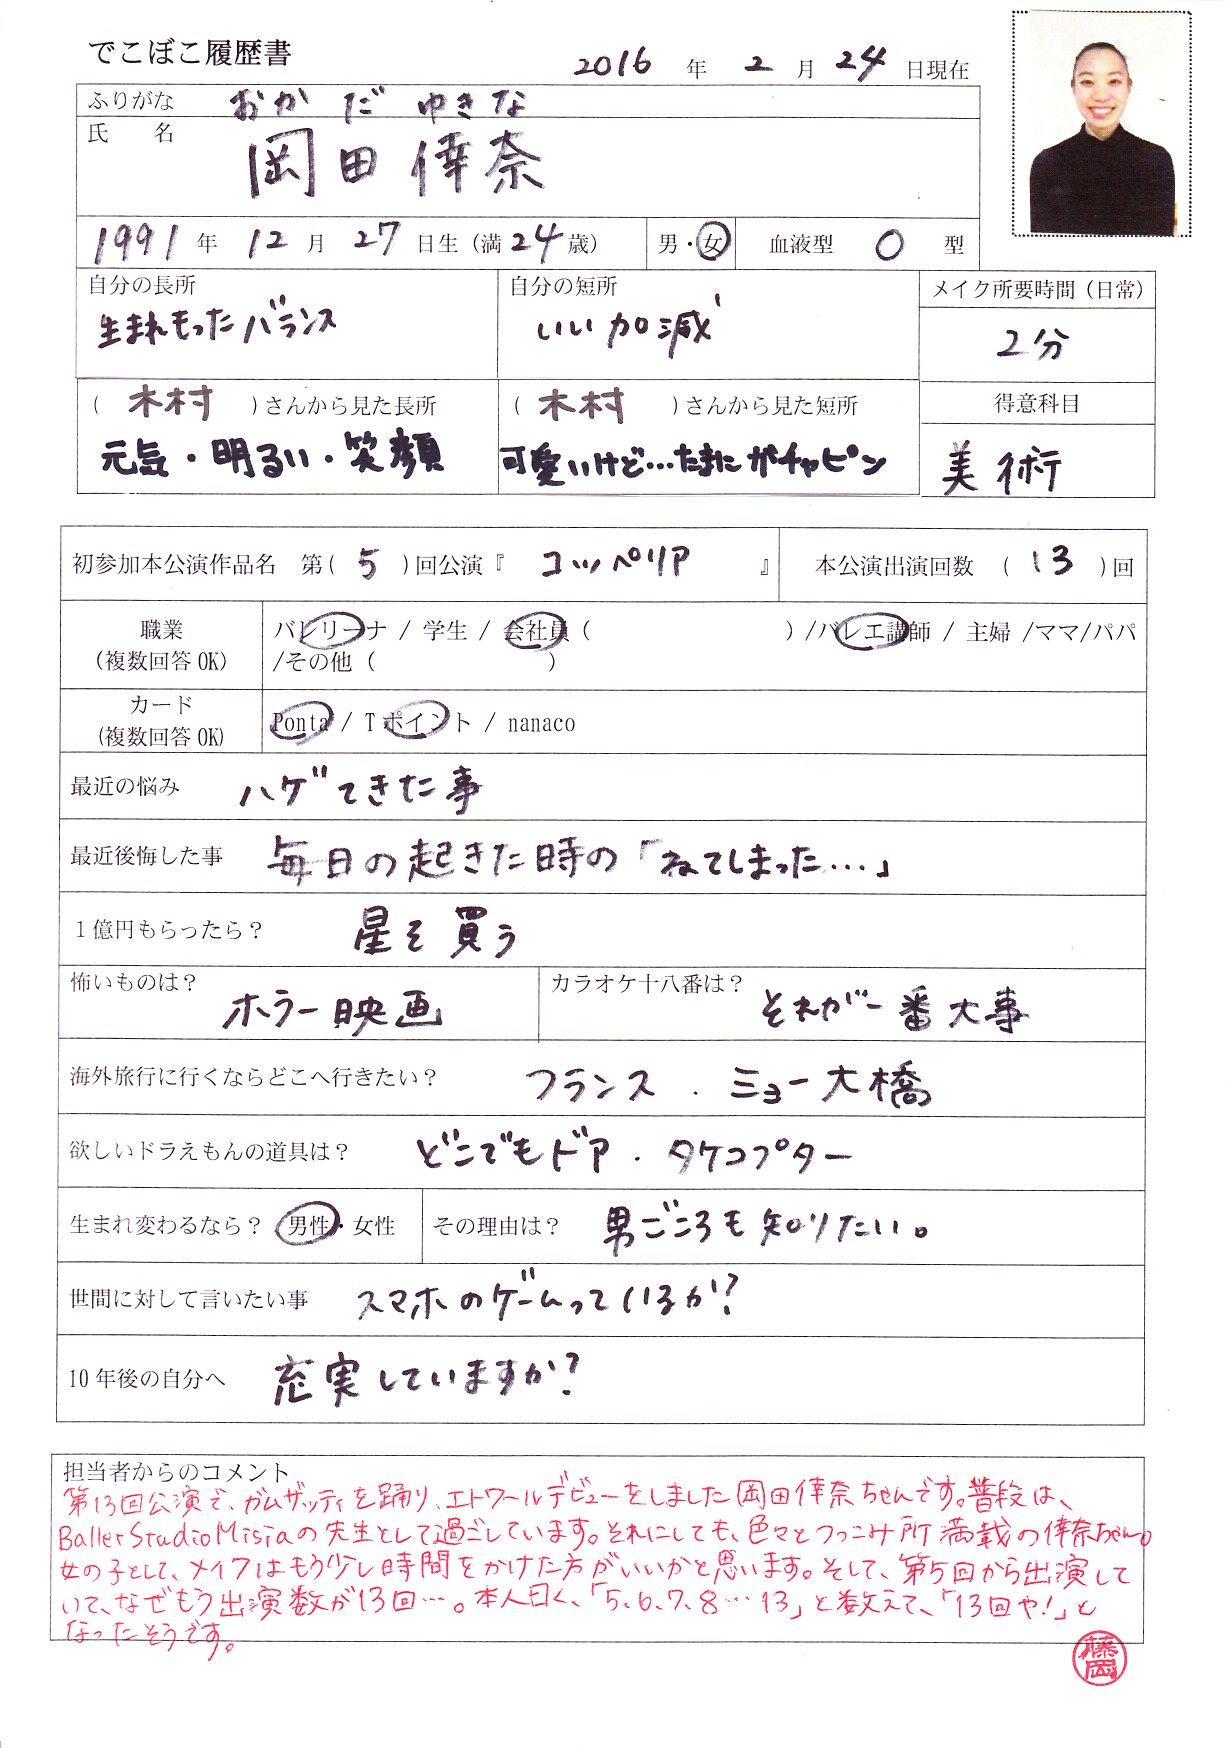 でこぼこ履歴書
2016 年 2 月 24 日現在
ふりがな おかだ ゆきな
氏 名 岡田倖奈
1991 年 12 月 27 日生（満 24 歳） 男・女 血液型 O 型
自分の長所 自分の短所 メイク所要時間（日常）
生まれもったバランス いい加減 2分
（ 木村 ）さんから見た長所 （ 木村 ）さんから見た短所 得意科目
元気・明るい・笑顔 可愛いけど…たまにガチャピン 美術
初参加本公演作品名 第（ 5 ）回公演『 コッペリア 』 本公演出演回数 （ 13 ）回
職業 バレリーナ / 学生 / 会社員（ ）/バレエ講師 / 主婦 /ママ/パパ
（複数回答 OK） /その他（ ）
カード
（複数回答 OK） Ponta / T ポイント / nanaco
最近の悩み ハゲてきた事
最近後悔した事 毎日の起きた時の「ねてしまった…」
１億円もらったら？ 星を買う
怖いものは？ ホラー映画 カラオケ十八番は？ それが一番大事
海外旅行に行くならどこへ行きたい？ フランス ． ミヨー大橋
欲しいドラえもんの道具は？ どこでもドア ． タケコプター
生まれ変わるなら？ 男性・女性 その理由は？ 男ごころも知りたい。
世間に対して言いたい事 スマホのゲームっているか？
10 年後の自分へ 充実していますか？
担当者からのコメント
第13回公演で、ガムザッティを踊り、エトワールデビューをしました岡田倖奈ちゃんです。普段は、
BallerStudioMisiaの先生として過ごしています。それにしても、色々とつっこみ所満載の倖奈ちゃん。
女の子として、メイクはもう少し時間をかけた方がいいかと思います。そして、第5回から出演して
いて、なぜもう出演数が13回…。本人曰く、「5、6、7、8…13」と数えて、「13回や！」と
なったそうです。
藤岡